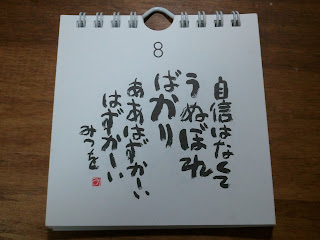 8
自信はなくて
うぬぼれ
ばかり
ああはずかしい
はずかしい
みつを